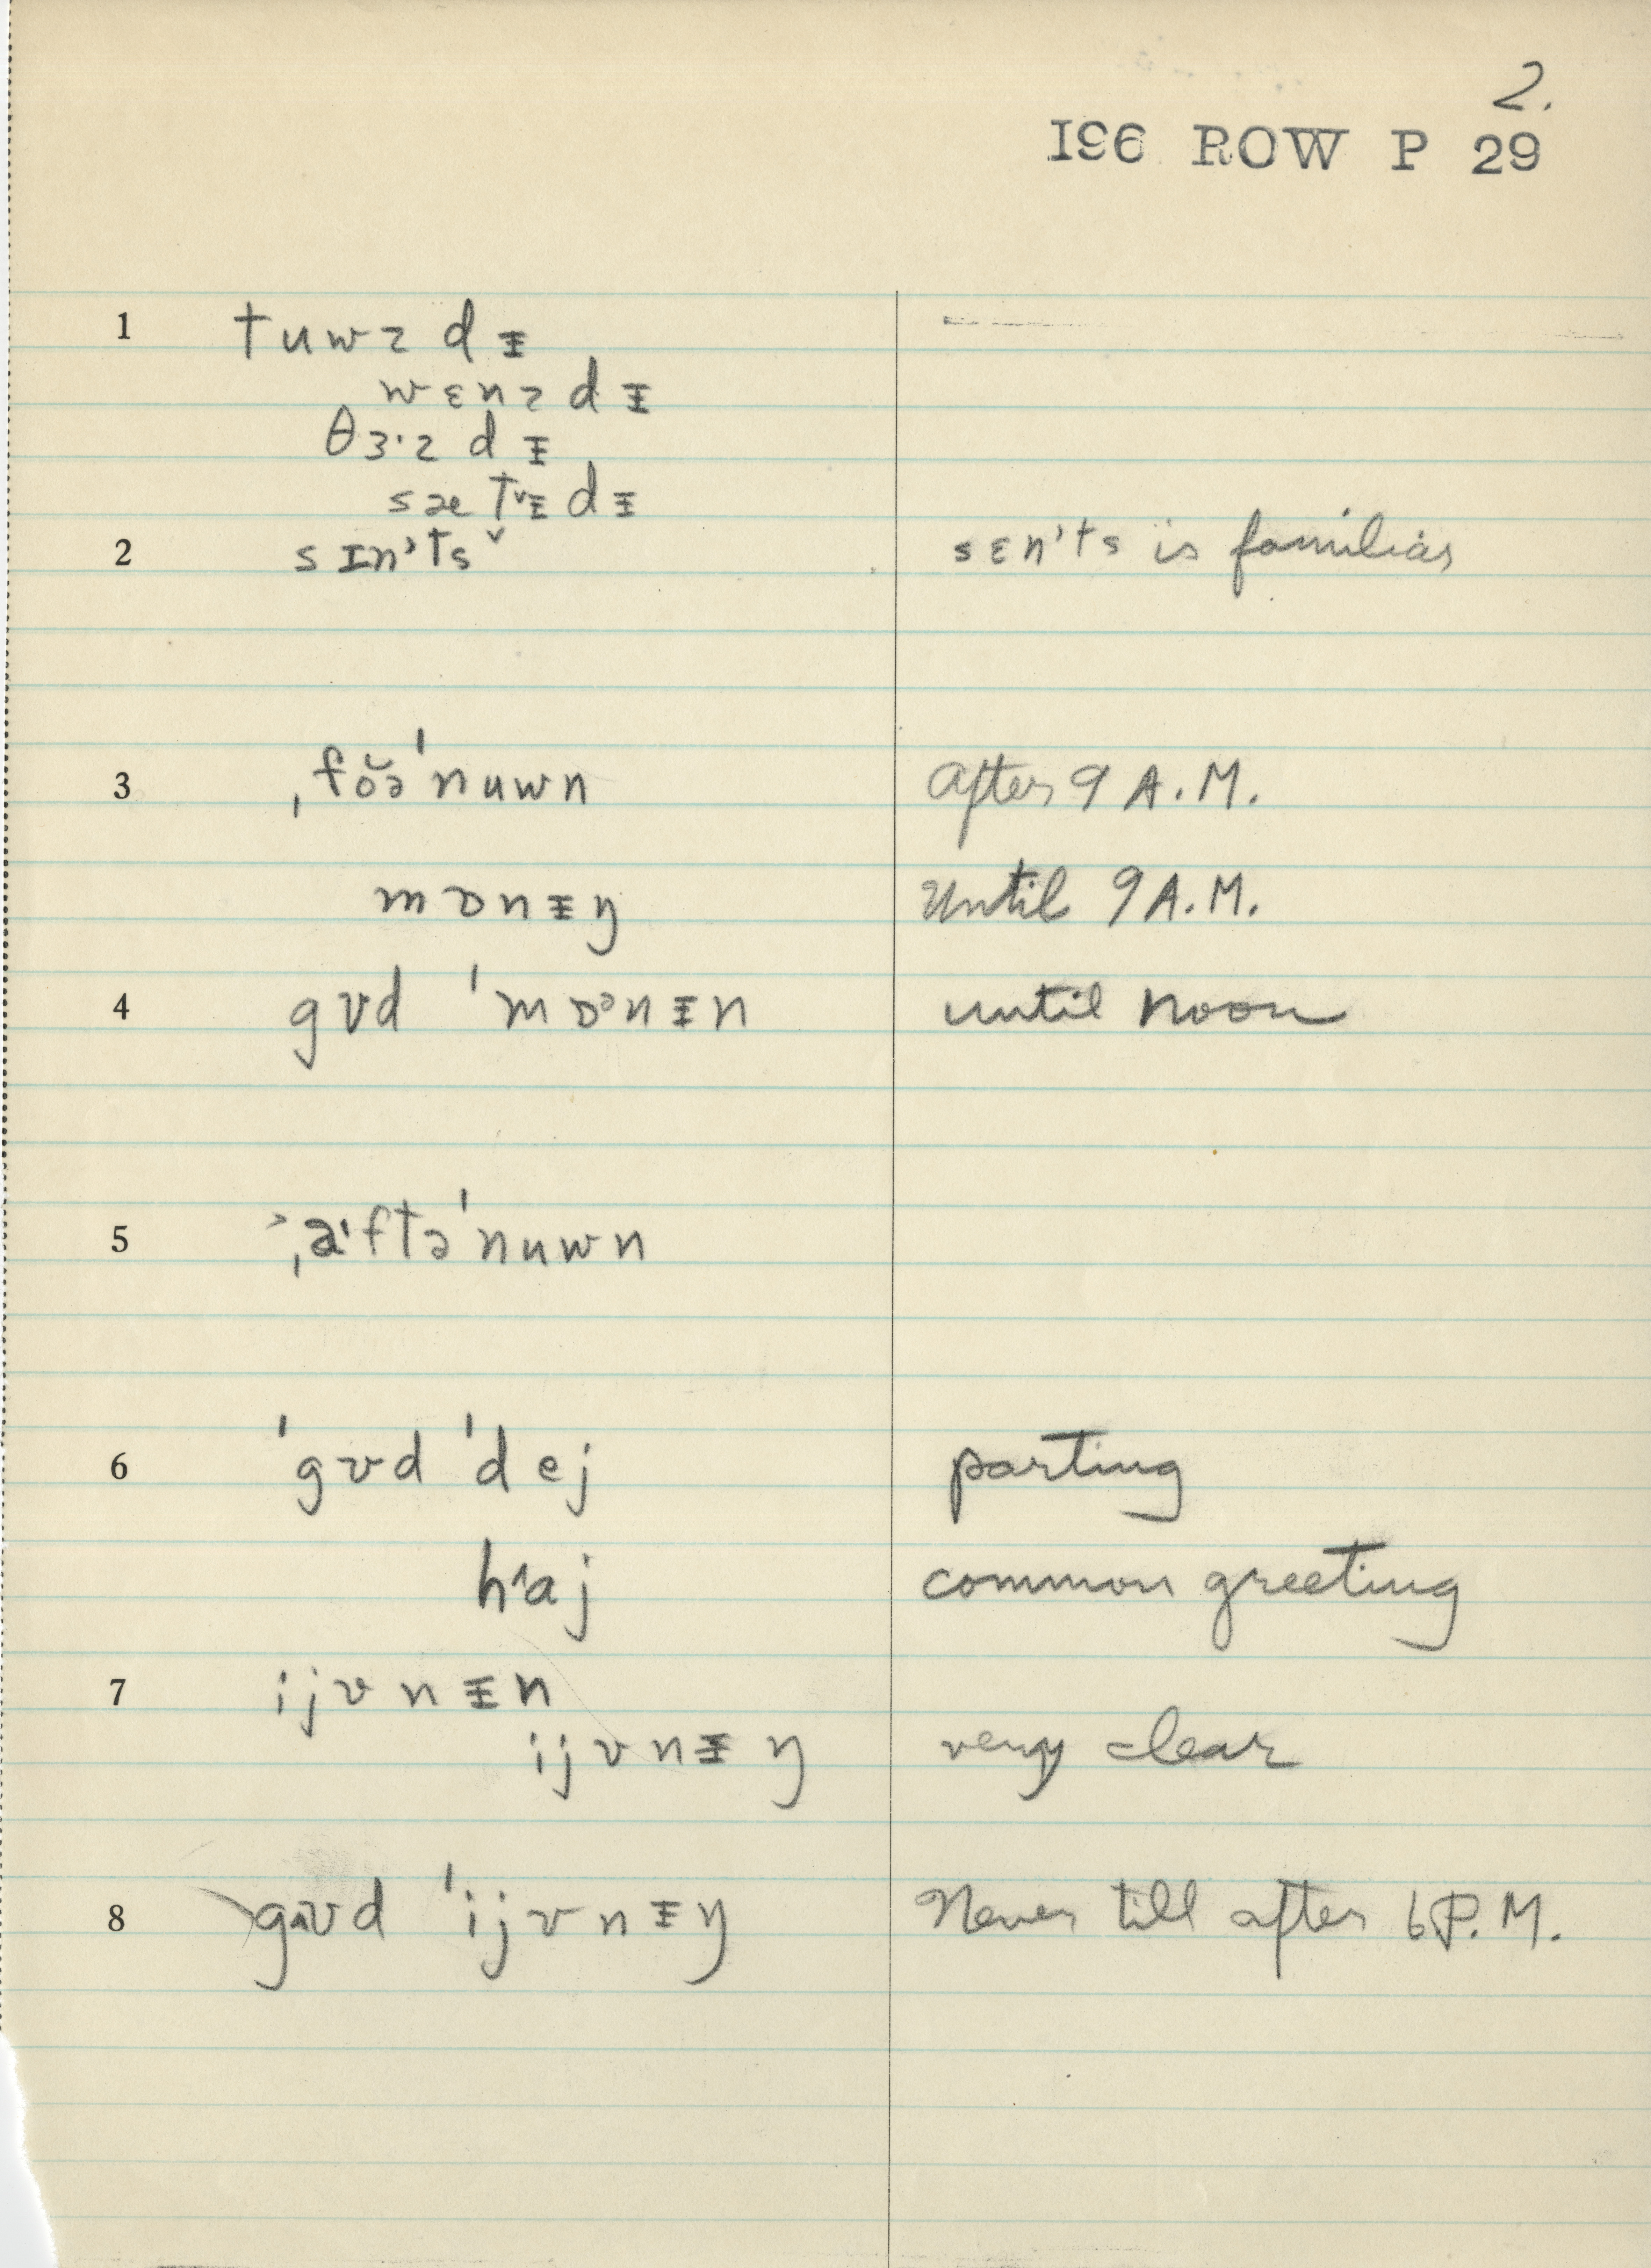 2.
196 ROW P 29
1 tuwz dɪ̵
wɛnz dɪ̵
θɜ·z dɪ̵
sætˇɪ̵dɪ̵
2 sɪn'tsˇ sɛn'ts is familiar
3 ˌfŏə'nuwn After 9 A.M.
mɒnɪ̵ŋ Until 9 A.M.
4 gʊd 'mɒᵊnɪ̵n until noon
5 ˌa·ftə'nuwn
6 'gʊd 'dej parting
hˆaj common greeting
7 ijvnɪ̵n
ijvnɪ̵ŋ very clear
8 gʊd 'ijvnɪ̵ŋ Never till after 6 P.M.